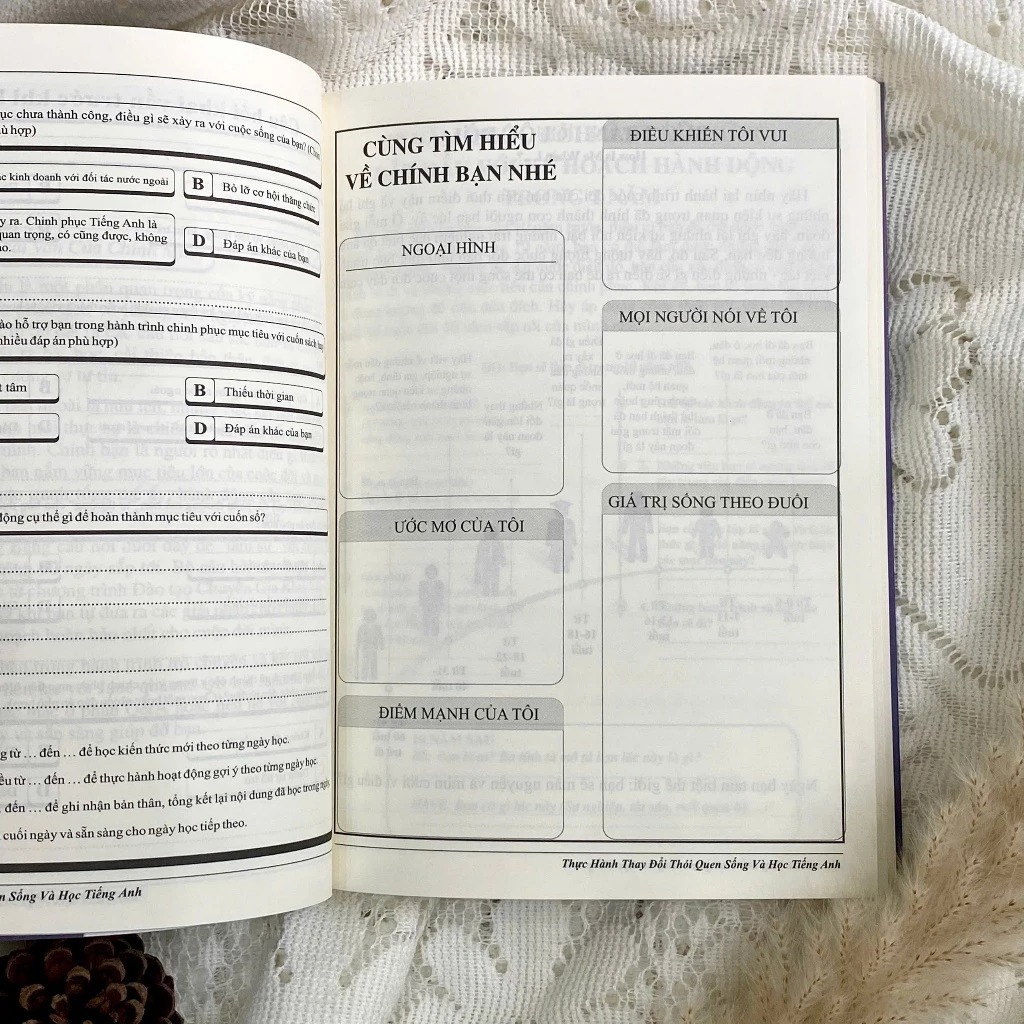 ục chưa thành công, điều gì sẽ xảy ra với cuộc sống của bạn? (Chọn
hù hợp)
ác kinh doanh với đối tác nước ngoài
B Bỏ lỡ cơ hội thăng chức
y ra. Chinh phục Tiếng Anh là
quan trọng, có cũng được, không
ao.
D Đáp án khác của bạn
ào hỗ trợ bạn trong hành trình chinh phục mục tiêu với cuốn sách này
nhiều đáp án phù hợp)
t tâm
B Thiếu thời gian
D Đáp án khác của bạn
động cụ thể gì để hoàn thành mục tiêu với cuốn sổ?
g từ … đến … để học kiến thức mới theo từng ngày học.
ều từ … đến … để thực hành hoạt động gợi ý theo từng ngày học.
. đến … để ghi nhận bản thân, tổng kết lại nội dung đã học trong ngày
cuối ngày và sẵn sàng cho ngày học tiếp theo.
n Sống Và Học Tiếng Anh
CÙNG TÌM HIỂU
VỀ CHÍNH BẠN NHÉ
NGOẠI HÌNH
ƯỚC MƠ CỦA TÔI
ĐIỂM MẠNH CỦA TÔI
ĐIỀU KHIẾN TÔI VUI
MỌI NGƯỜI NÓI VỀ TÔI
GIÁ TRỊ SỐNG THEO ĐUỔI
Thực Hành Thay Đổi Thói Quen Sống Và Học Tiếng Anh